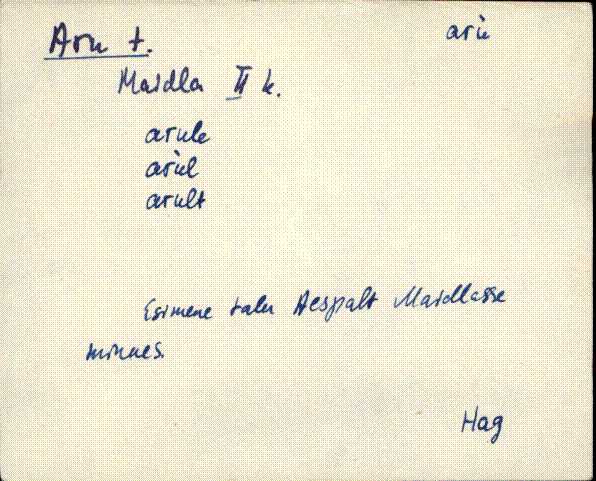 Aru t.
aru̇
Maidla II k.
arule
aru̇l
arult
Esimene talu Aespalt Maidlasse
minnes.
Hag